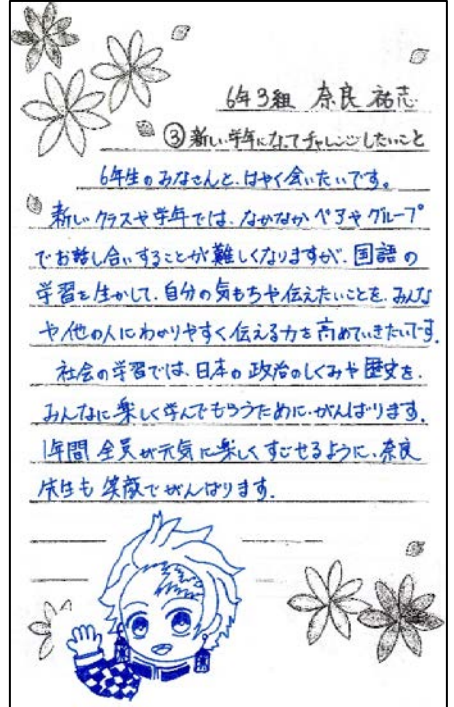 6年3組 奈良 祐志
③新しい学年になってチャレンジしたいこと
6年生のみなさんと、はやく会いたいです。
新しいクラスや学年では、なかなかペアやグループ
でお話し合いすることが難しくなりますが、国語の
学習を生かして、自分の気もちや伝えたいことを、みんな
や他の人にわかりやすく伝える力を高めていきたいです。
社会の学習では、日本の政治のしくみや歴史を、
みんなに楽しく学んでもらうために、がんばります。
1年間 全員が元気に楽しくすごせるように、奈良
先生も笑顔でがんばります。